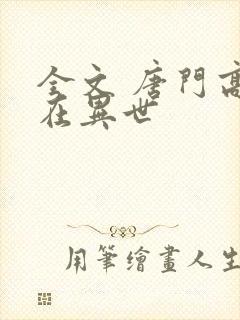 全文 唐門高
在異世
用筆繪畫人生